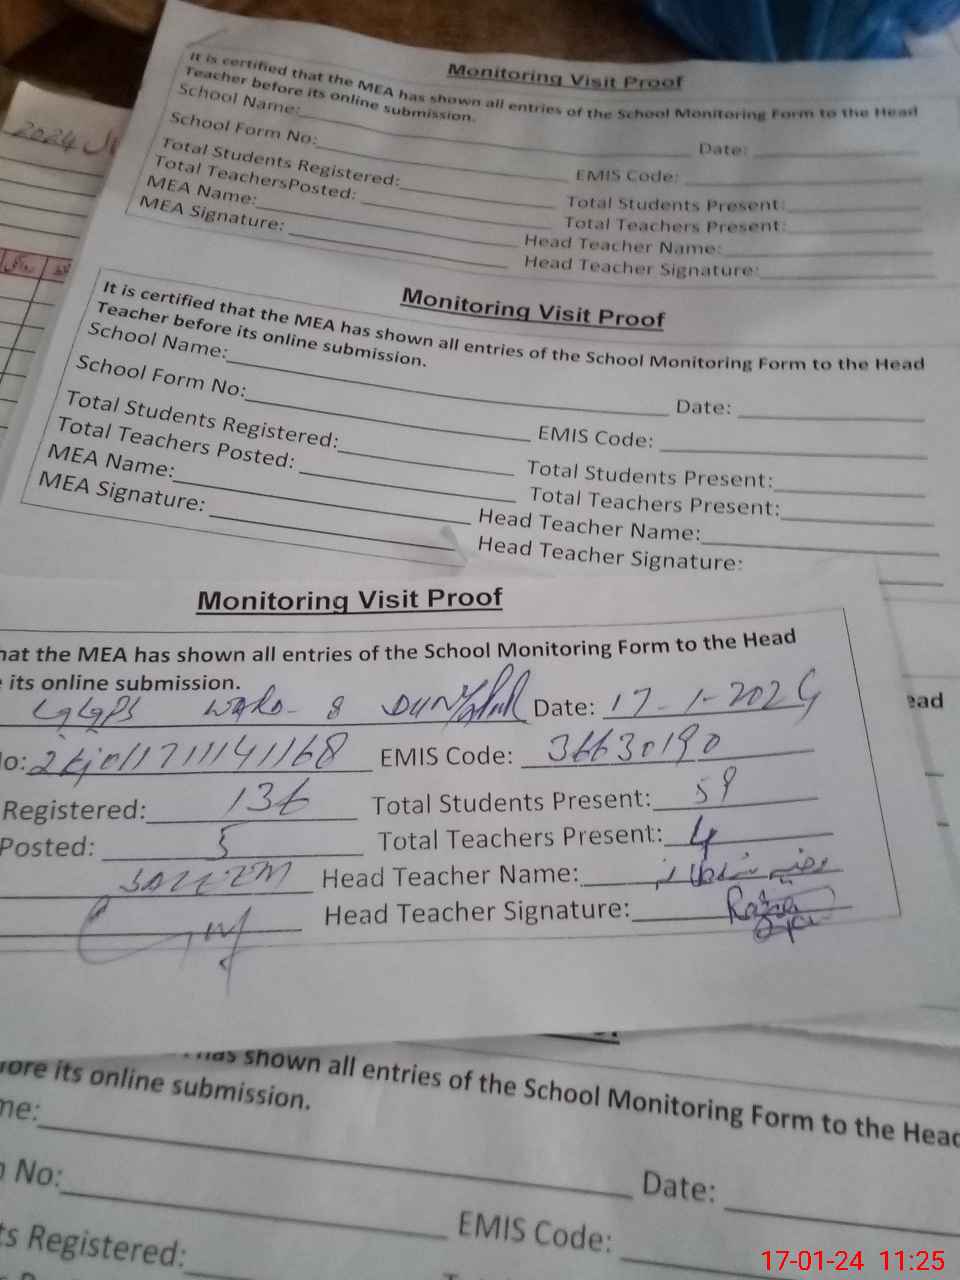 2024
Monitoring Visit Proof
It is certified that the MEA has shown all entries of the School Monitoring Form to the Head
Teacher before its online submission.
School Name: Date:
School Form No: EMIS Code:
Total Students Registered: Total Students Present:
Total TeachersPosted: Total Teachers Present:
MEA Name: Head Teacher Name:
MEA Signature: Head Teacher Signature:
Monitoring Visit Proof
It is certified that the MEA has shown all entries of the School Monitoring Form to the Head
Teacher before its online submission.
School Name: Date:
School Form No: EMIS Code:
Total Students Registered: Total Students Present:
Total Teachers Posted: Total Teachers Present:
MEA Name: Head Teacher Name:
MEA Signature: Head Teacher Signature:
Monitoring Visit Proof
hat the MEA has shown all entries of the School Monitoring Form to the Head
its online submission.
GGPS WARD-8 Date: 17-1-2024
No: EMIS Code: 36630190
Registered: 136 Total Students Present: 59
Posted: 5 Total Teachers Present: 4
Head Teacher Name:
Head Teacher Signature: Razia
ead
has shown all entries of the School Monitoring Form to the Head
fore its online submission.
me: Date:
No: EMIS Code:
ts Registered:
17-01-24 11:25